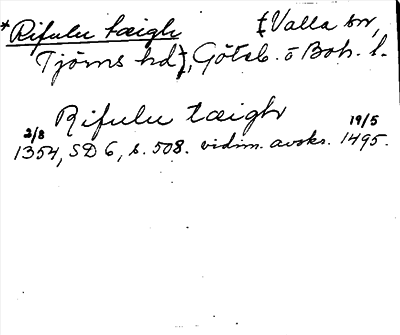 *Rifulu tæigh [Valla sn,
Tjörns hd], Göteb. o Boh. l.
Rifulu tæigh
2/8 19/5
1354, SD 6, s. 508. vidim. avskr. 1495.